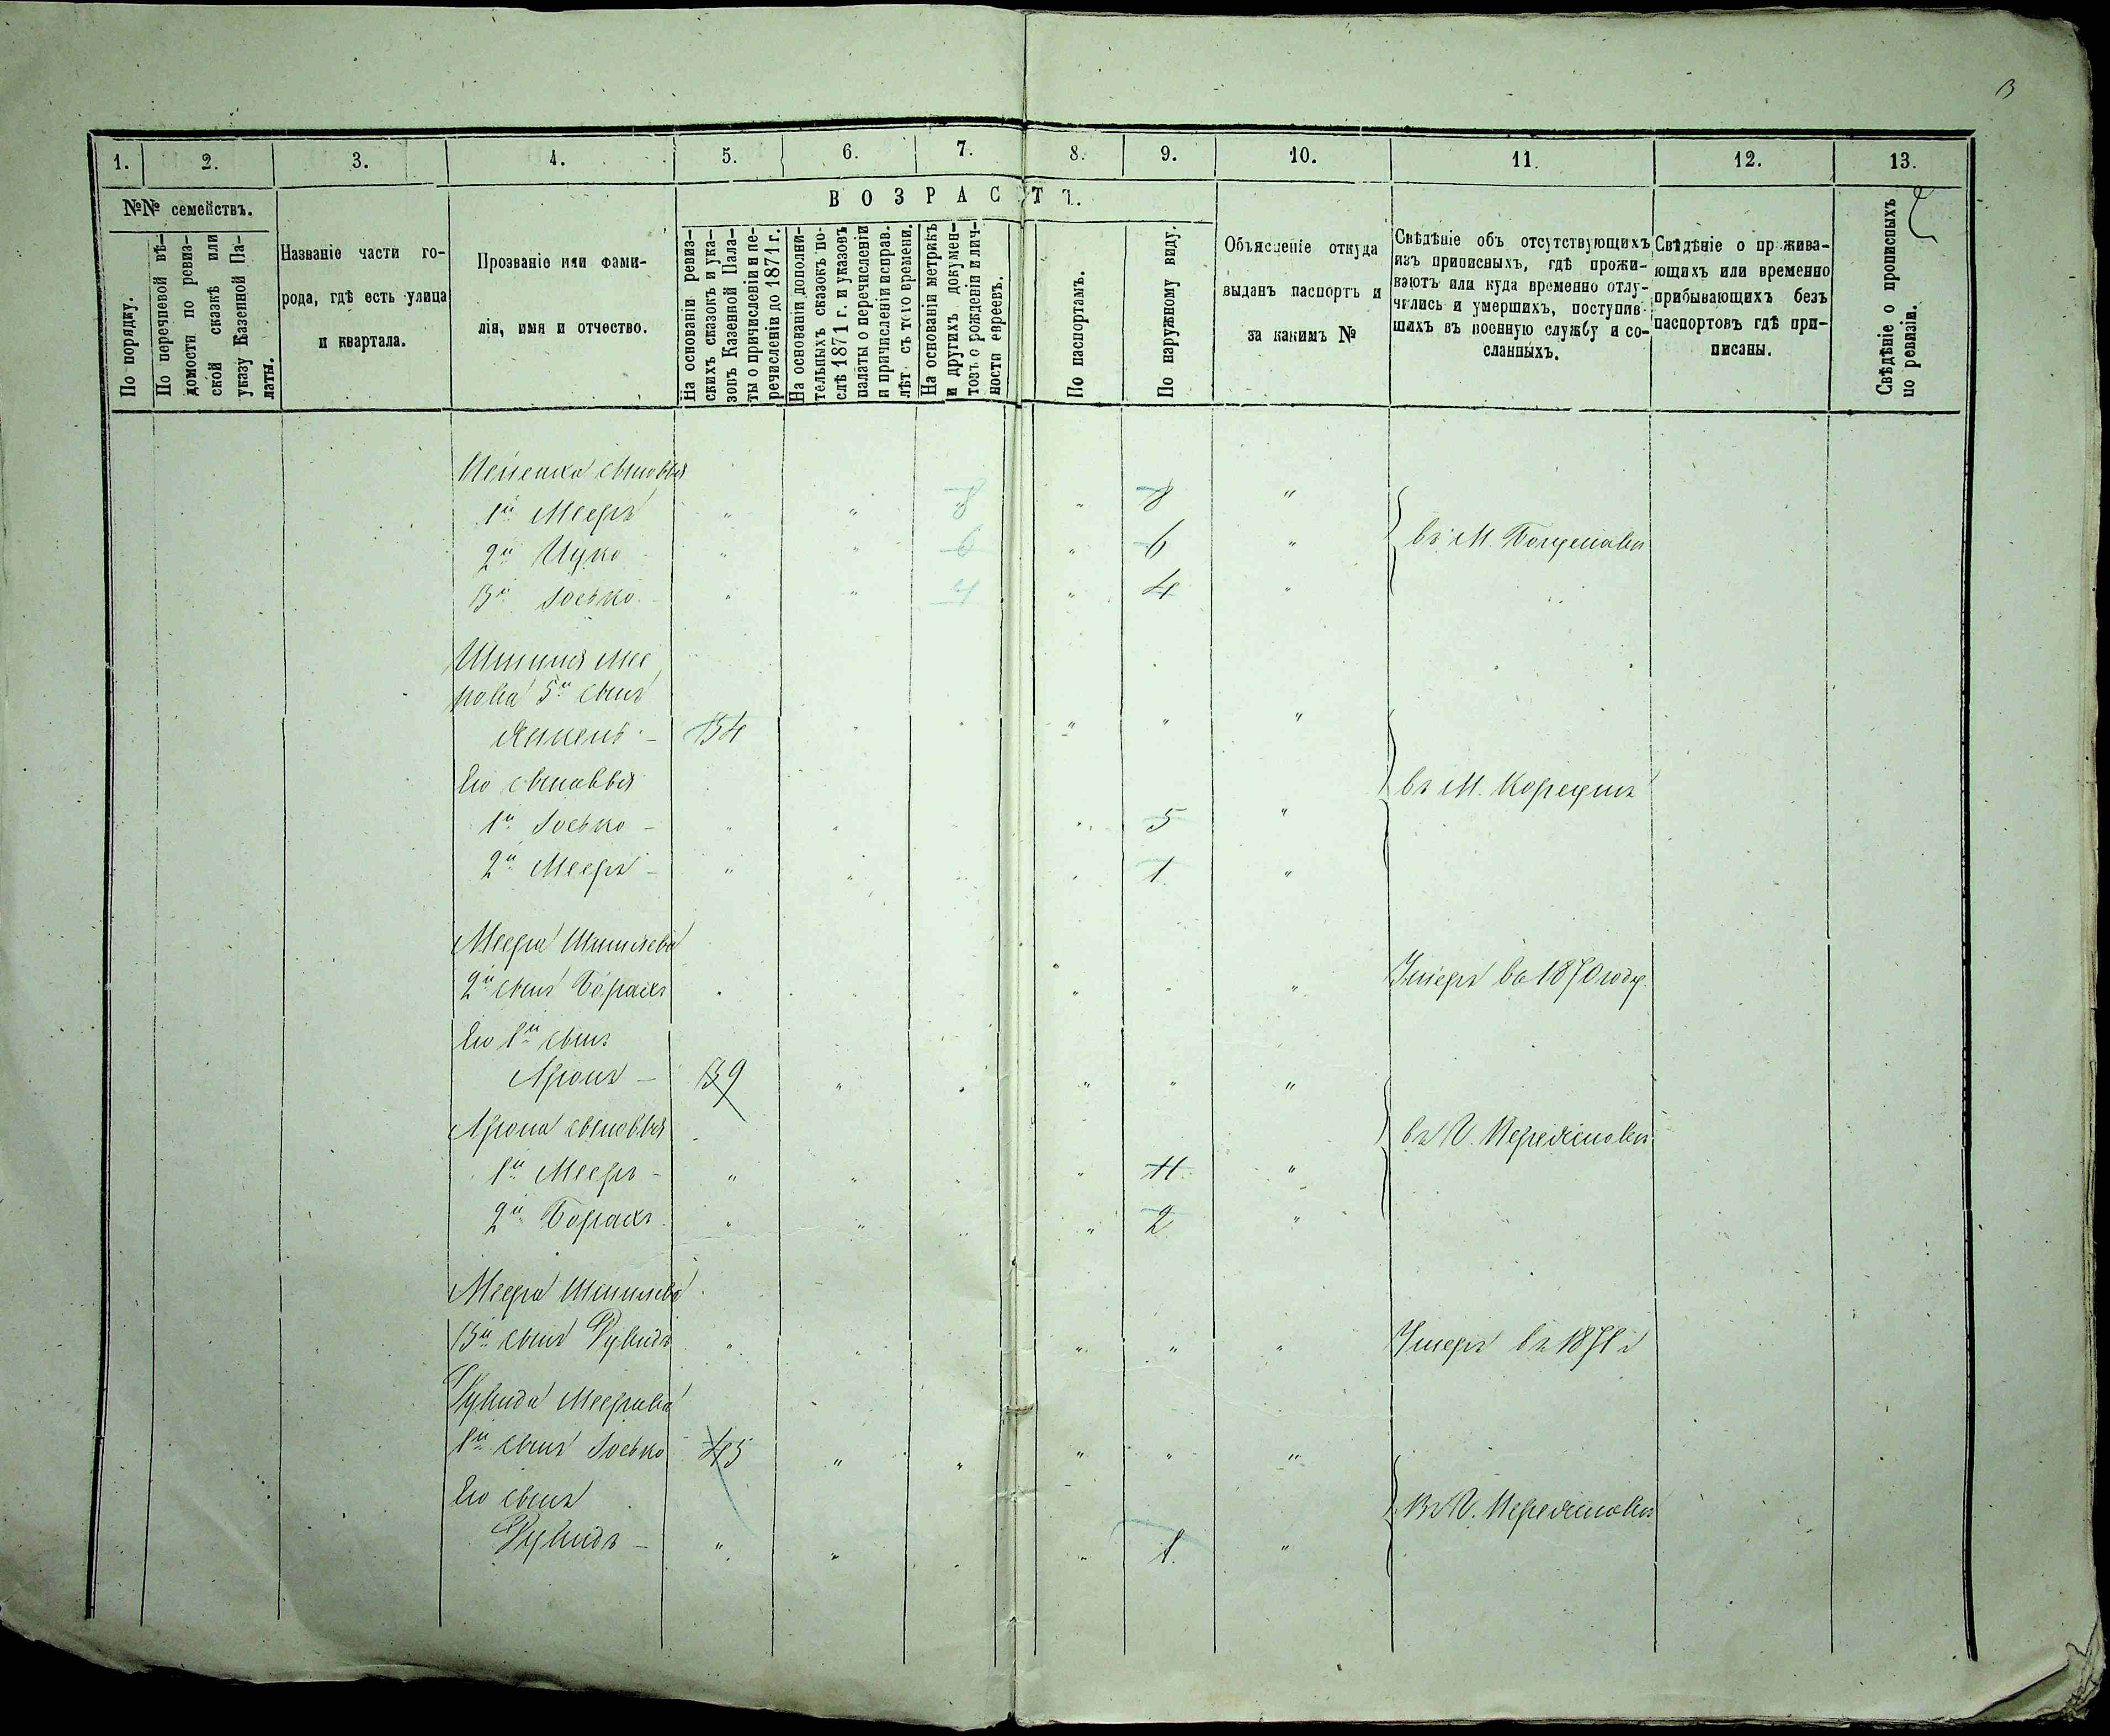 3
1. 2. 3. 4. 5. 6. 7. 8. 9. 10. 11. 12. 13.
№№ семействъ.
По порядку.
По перечневой вѣ-
домости по ревиз-
ской сказкѣ или
указу Казенной Па-
латы.
Названіе части го-
рода, гдѣ есть улица
и квартала.
Прозваніе или фами-
лія, имя и отчество.
ВОЗРАСТЪ.
На основаніи ревиз-
скихъ сказокъ и ука-
зовъ Казенной Пала-
ты о причисленіи и пе-
речисленіи до 1871 г.
На основаніи дополни-
тельныхъ сказокъ по-
слѣ 1871 г. и указовъ
палаты о перечисленіи
и причисленіи исправ.
лѣт съ того времени.
На основаніи метрикъ
и другихъ докумен-
товъ о рожденіи и лич-
ности евреевъ.
По паспортамъ.
По наружному виду.
Объясненіе откуда
выданъ паспортъ и
за какимъ №
Свѣдѣніе объ отсутствующихъ
изъ приписныхъ, гдѣ прожи-
ваютъ или куда временно отлу-
чились и умершихъ, поступив-
шихъ въ военную службу и со-
сланныхъ.
Свѣдѣніе о прожива-
ющихъ или временно
прибывающихъ безъ
паспортовъ гдѣ при-
писаны.
Свѣдѣніе о прописныхъ
по ревизіи.
сыновья
1й Мееръ " " 8 " 8 "
2й Ицко " " 6 " 6 "
3й Іосько " " 4 " 4 "
въ М.
Шмиля Мее
рова 5й сынъ
Янкель - 34 " " " " "
Его сыновья
въ М. Корецкъ
1й Іосько - " " " " 5 "
2й Мееръ - " " " " 1 "
Меера Шмилева
2й сынъ Борахъ " " " " " " Умеръ въ 1870 году.
Его 1й сынъ
Аронъ - 39 " " " " "
Арона сыновья
въ
1й Мееръ - " " " " 11 "
2й Борахъ " " " " 2 "
Меера Шмилева
3й сынъ Рувидъ " " " " " Умеръ въ 1871 г
Рувида Меерова
1й сынъ Іосько 45 " " " " "
Его сынъ
Рувидъ - " " " " 1. "